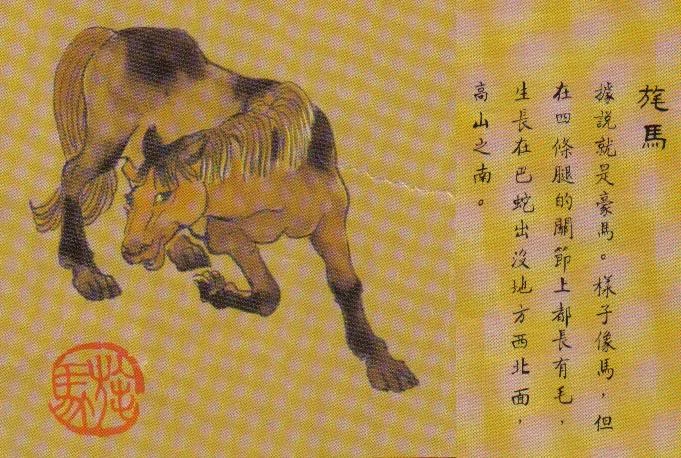 旄馬
據說就是豪馬。樣子像馬，但
在四條腿的關節上都長有毛，
生長在巴蛇出沒地方西北面，
高山之南。
旄馬